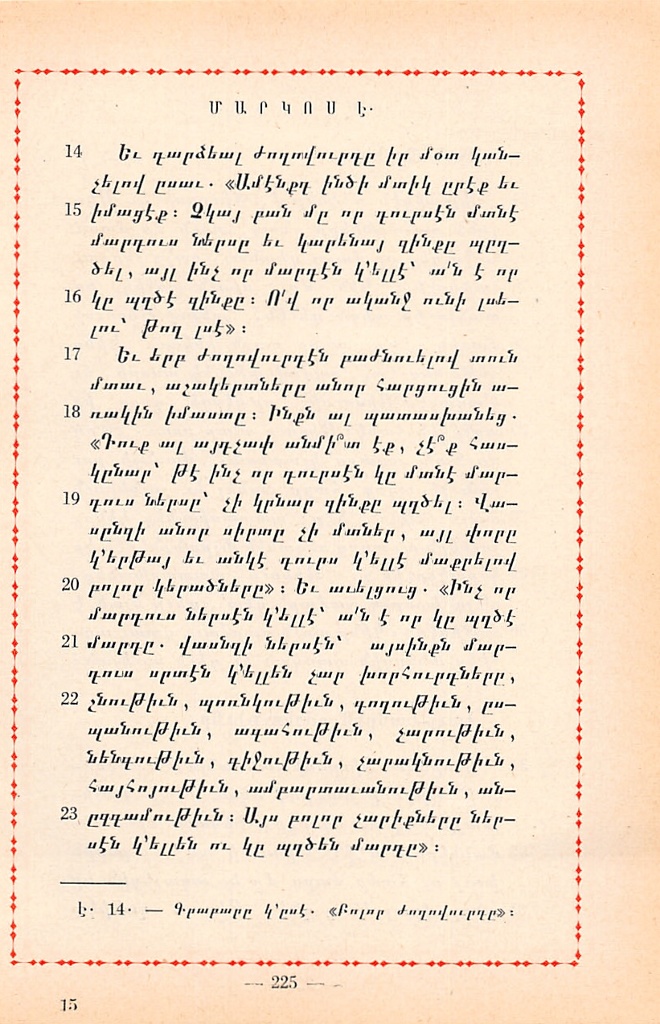 ՄԱՐԿՈՍ Է.
14 Եւ դարձեալ ժողովուրդը իր մօտ կան-
չելով ըսաւ. «Ամէնքդ ինծի մտիկ ըրէք եւ
15 իմացէք: Չկայ բան մը որ դուրսէն մտնէ
մարդուս ներսը եւ կարենայ զինքը պըղ-
ծել, այլ ինչ որ մարդէն կ'ելլէ՝ ա՛ն է որ
16 կը պղծէ զինքը: Ո՛վ որ ականջ ունի լսե-
լու՝ թող լսէ»:
17 Եւ երբ ժողովուրդէն բաժնուելով տուն
մտաւ, աշակերտները անոր հարցուցին ա-
18 ռակին իմաստը: Ինքն ալ պատասխանեց.
«Դուք ալ այդչափ անմի՞տ էք, չէ՞ք հաս-
կընար՝ թէ ինչ որ դուրսէն կը մտնէ մար-
19 դուս ներսը՝ չի կրնար զինքը պղծել: Վա-
սընզի անոր սիրտը չի մտներ, այլ փորը
կ'երթայ եւ անկէ դուրս կ'ելլէ մաքրելով
20 բոլոր կերածները»: Եւ աւելցուց. «Ինչ որ
մարդուս ներսէն կ'ելլէ՝ ա՛ն է որ կը պղծէ
21 մարդը. վասնզի ներսէն՝ այսինքն մար-
դուս սրտէն կ'ելլեն չար խորհուրդները,
22 շնութիւն, պոռնկութիւն, գողութիւն, ըս-
պանութիւն, ագահութիւն, չարութիւն,
նենգութիւն, գիջութիւն, չարակնութիւն,
հայհոյութիւն, ամբարտաւանութիւն, ան-
23 ըզգամութիւն: Այս բոլոր չարիքները ներ-
սէն կ'ելլեն ու կը պղծեն մարդը»:
Է. 14. — Գրաբարը կ'ըսէ. «Բոլոր ժողովուրդը»:
— 225 —
15